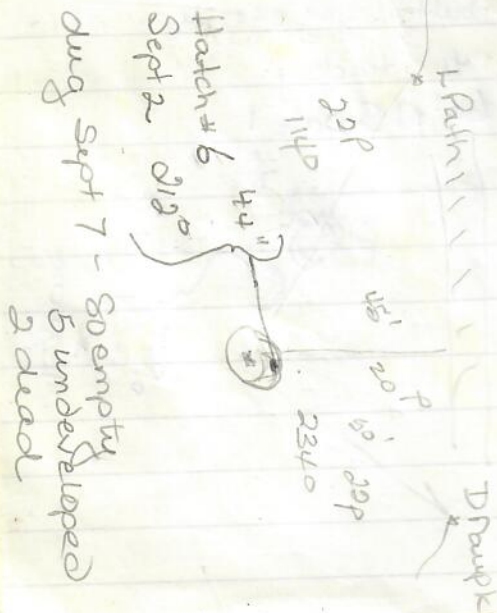 L Path
22P
114°
45'
20P
60'
22P
234°
44"
Hatch # 6
Sept 2 212°
dug Sept 7 - 80 empty
5 undeveloped
2 dead